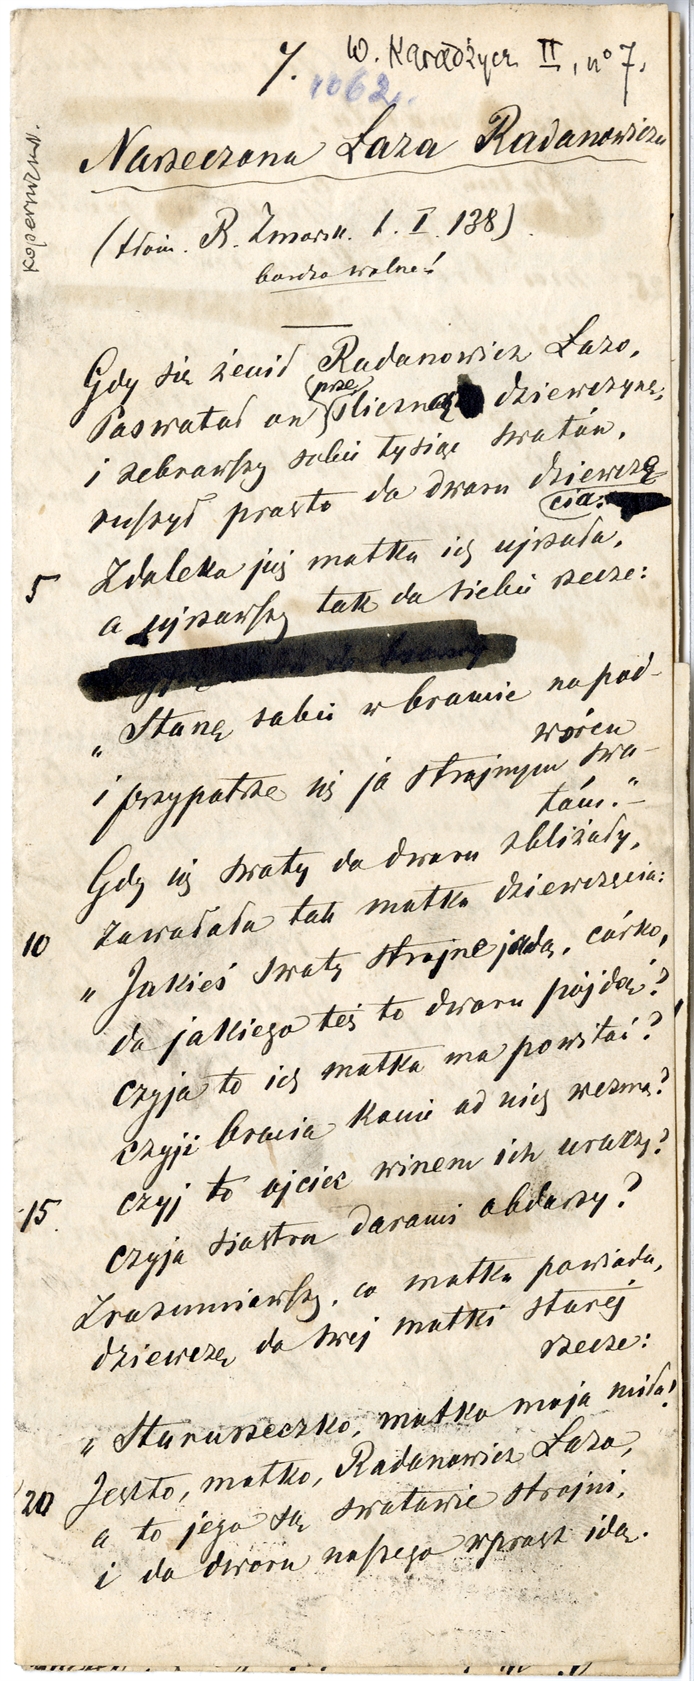 7. W. Karadżycz II, nº 7.
1062.
Narzeczona Laza Radanowicza
(tłom. R. Zmorsk. t. I. 138)
bardzo wolne!
Kopiowany.
Gdy się żenił Radanowicz Lazo,
Paswatał on prześliczną dziewczynę;
i zebrawszy sobie tysiąc swatów,
ruszył prosto do dworu dziewczę
cia:
5 Zdaleka już matka ich ujrzała,
a ujrzawszy tak do siebie rzecze:
„Stanę sobie w bramie na pod-
wórcu
i przypatrzę się ja strojnym swa-
tóm."—
Gdy się swaty do dworu zbliżały,
10 zawołała tak matka dziewczęcia:
„Jakieś swaty strojne jadą, córko,
do jakiego też to dworu pójdą?
czyja to ich matka ma powitać?
czyji bracia konie od nich wezmą?
15 czyj to ojciec winem ich uraczy?
czyja siostra darami obdarzy?
Zrozumiawszy, co matka powiada,
dziewczę do swej matki starej
rzecze:
„Staruszeczko, matko moja miła!
20 Jestto, matko, Radanowicz Lazo,
a to jego są swatowie strojni,
i do dworu naszego wprost idą.